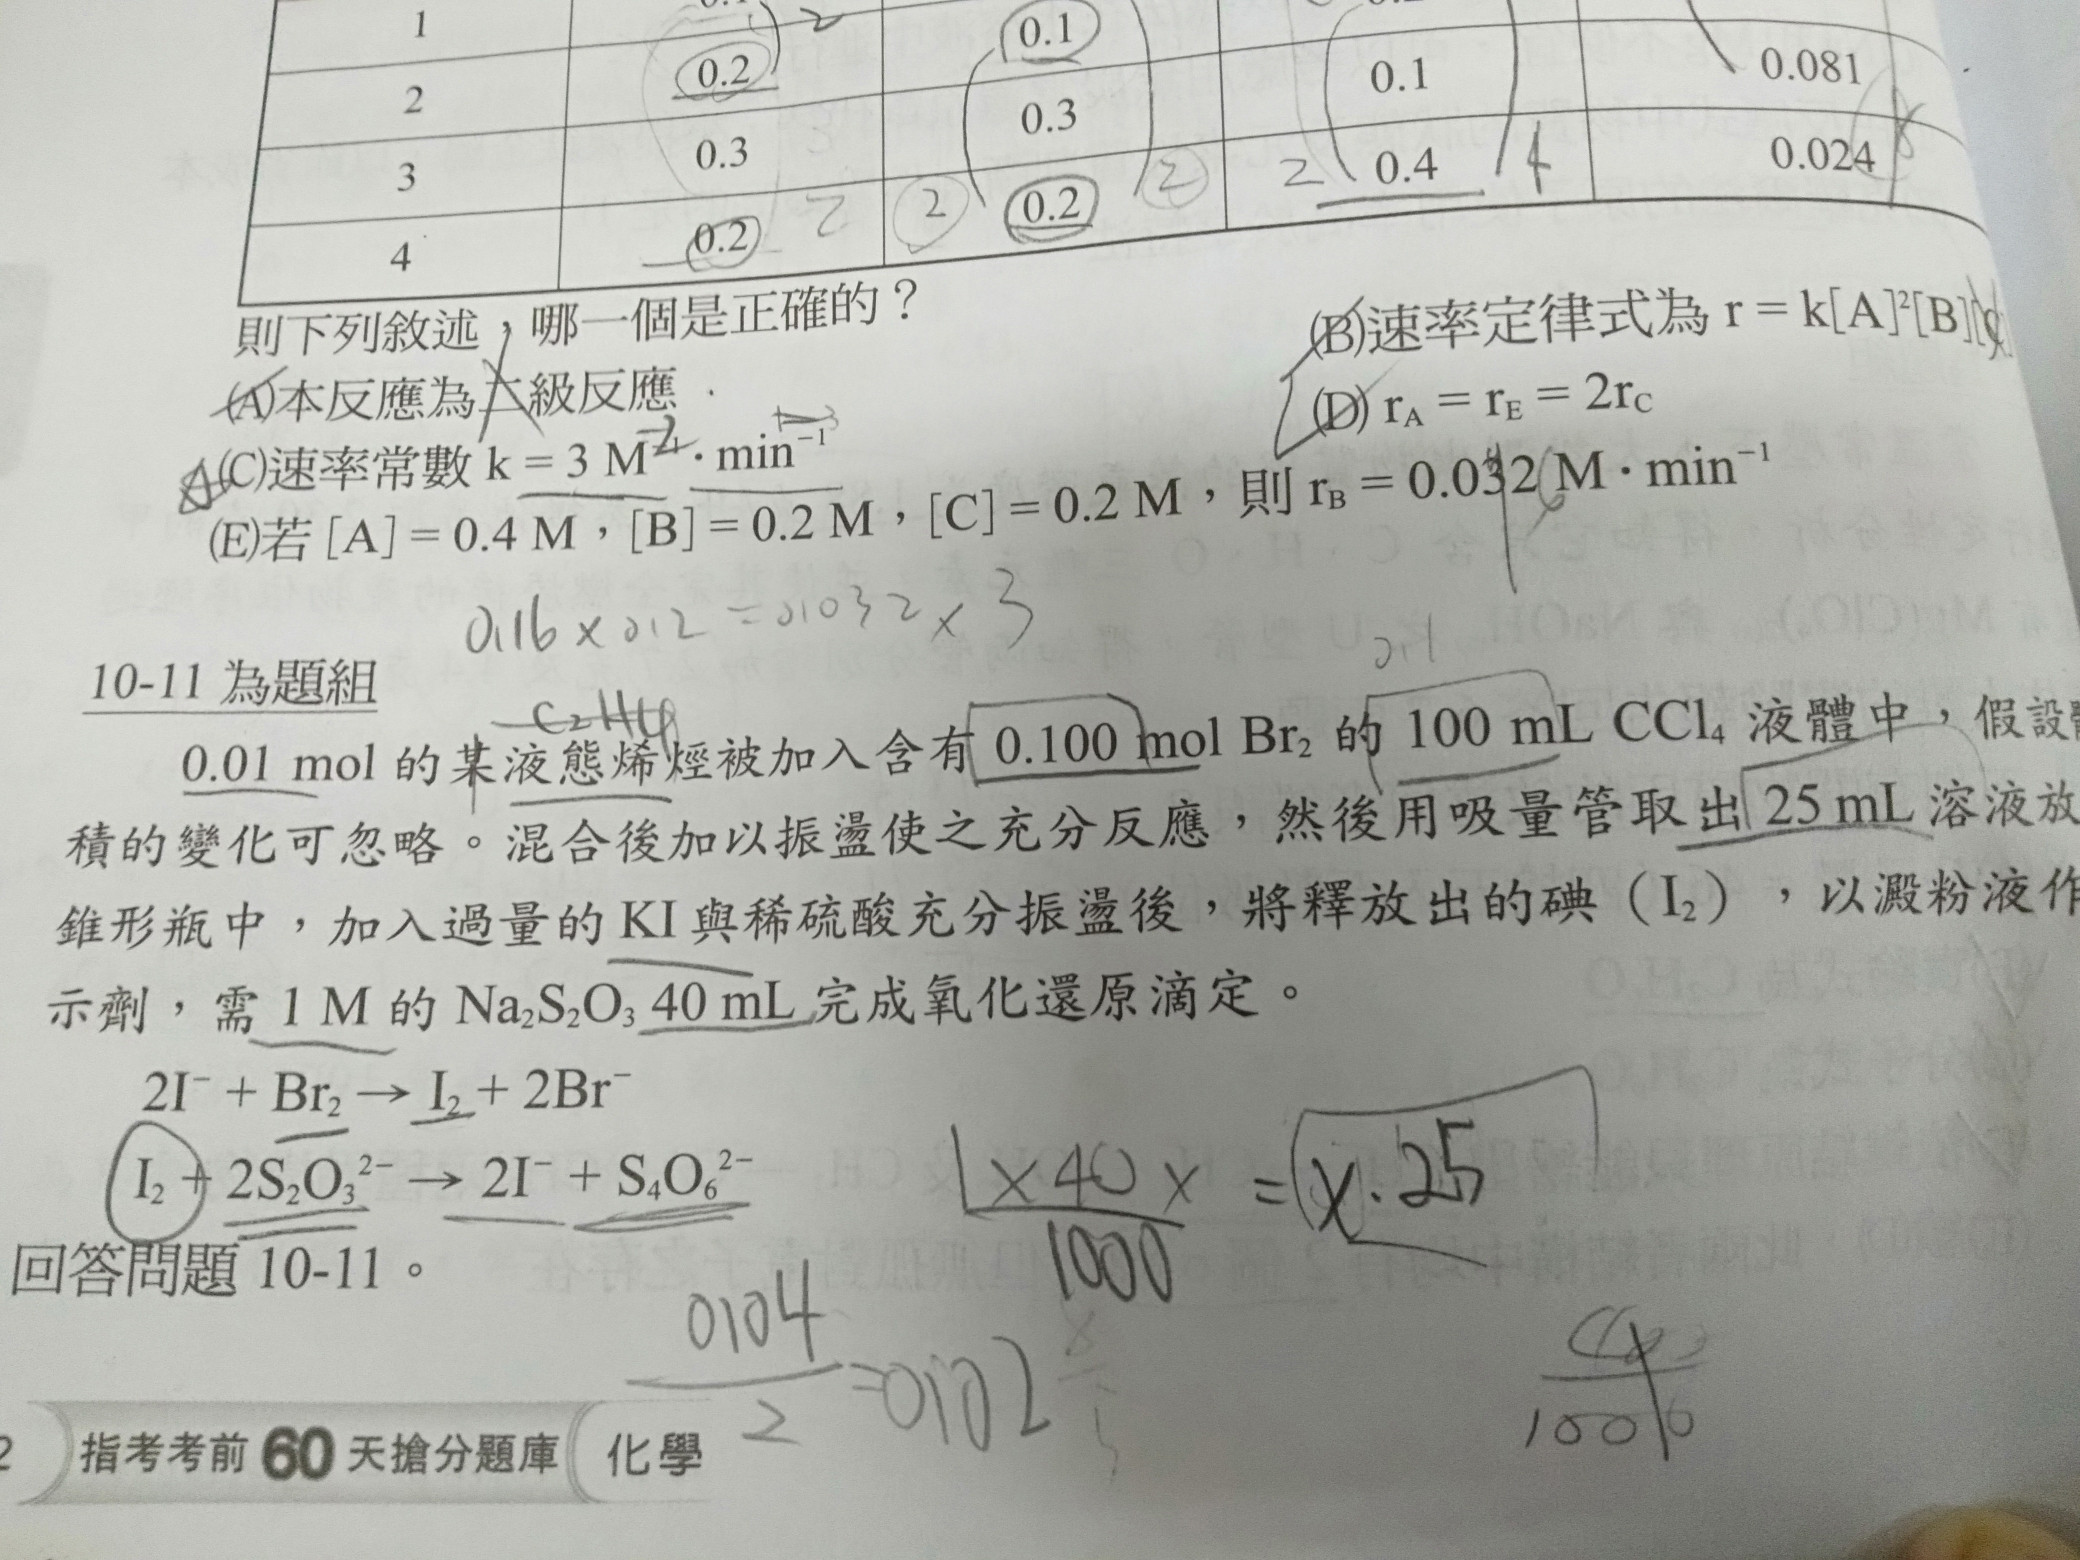 1 2 0.1
2 0.2 0.1 0.081
3 0.3 0.3 0.4 0.024
4 0.2 0.2
2 2 2 2 4 8
則下列敘述，哪一個是正確的？
(A)本反應為二級反應
(B)速率定律式為 r = k[A]²[B][C]
(C)速率常數 k = 3 M⁻¹·min⁻¹
(D) r_A = r_E = 2r_C
(E)若 [A] = 0.4 M，[B] = 0.2 M，[C] = 0.2 M，則 r_B = 0.032 M·min⁻¹
0.16 × 0.2 = 0.032 × 3
10-11 為題組
C₂H₄
0.1
0.01 mol 的某液態烯烴被加入含有 0.100 mol Br₂ 的 100 mL CCl₄ 液體中，假設
積的變化可忽略。混合後加以振盪使之充分反應，然後用吸量管取出 25 mL 溶液放
錐形瓶中，加入過量的 KI 與稀硫酸充分振盪後，將釋放出的碘（I₂），以澱粉液作
示劑，需 1 M 的 Na₂S₂O₃ 40 mL 完成氧化還原滴定。
2I⁻ + Br₂ → I₂ + 2Br⁻
I₂ + 2S₂O₃²⁻ → 2I⁻ + S₄O₆²⁻
1 × 40 × / 1000 = x · 25
回答問題 10-11。
0.04 / 2 = 0.02
2 指考考前 60 天搶分題庫 化學